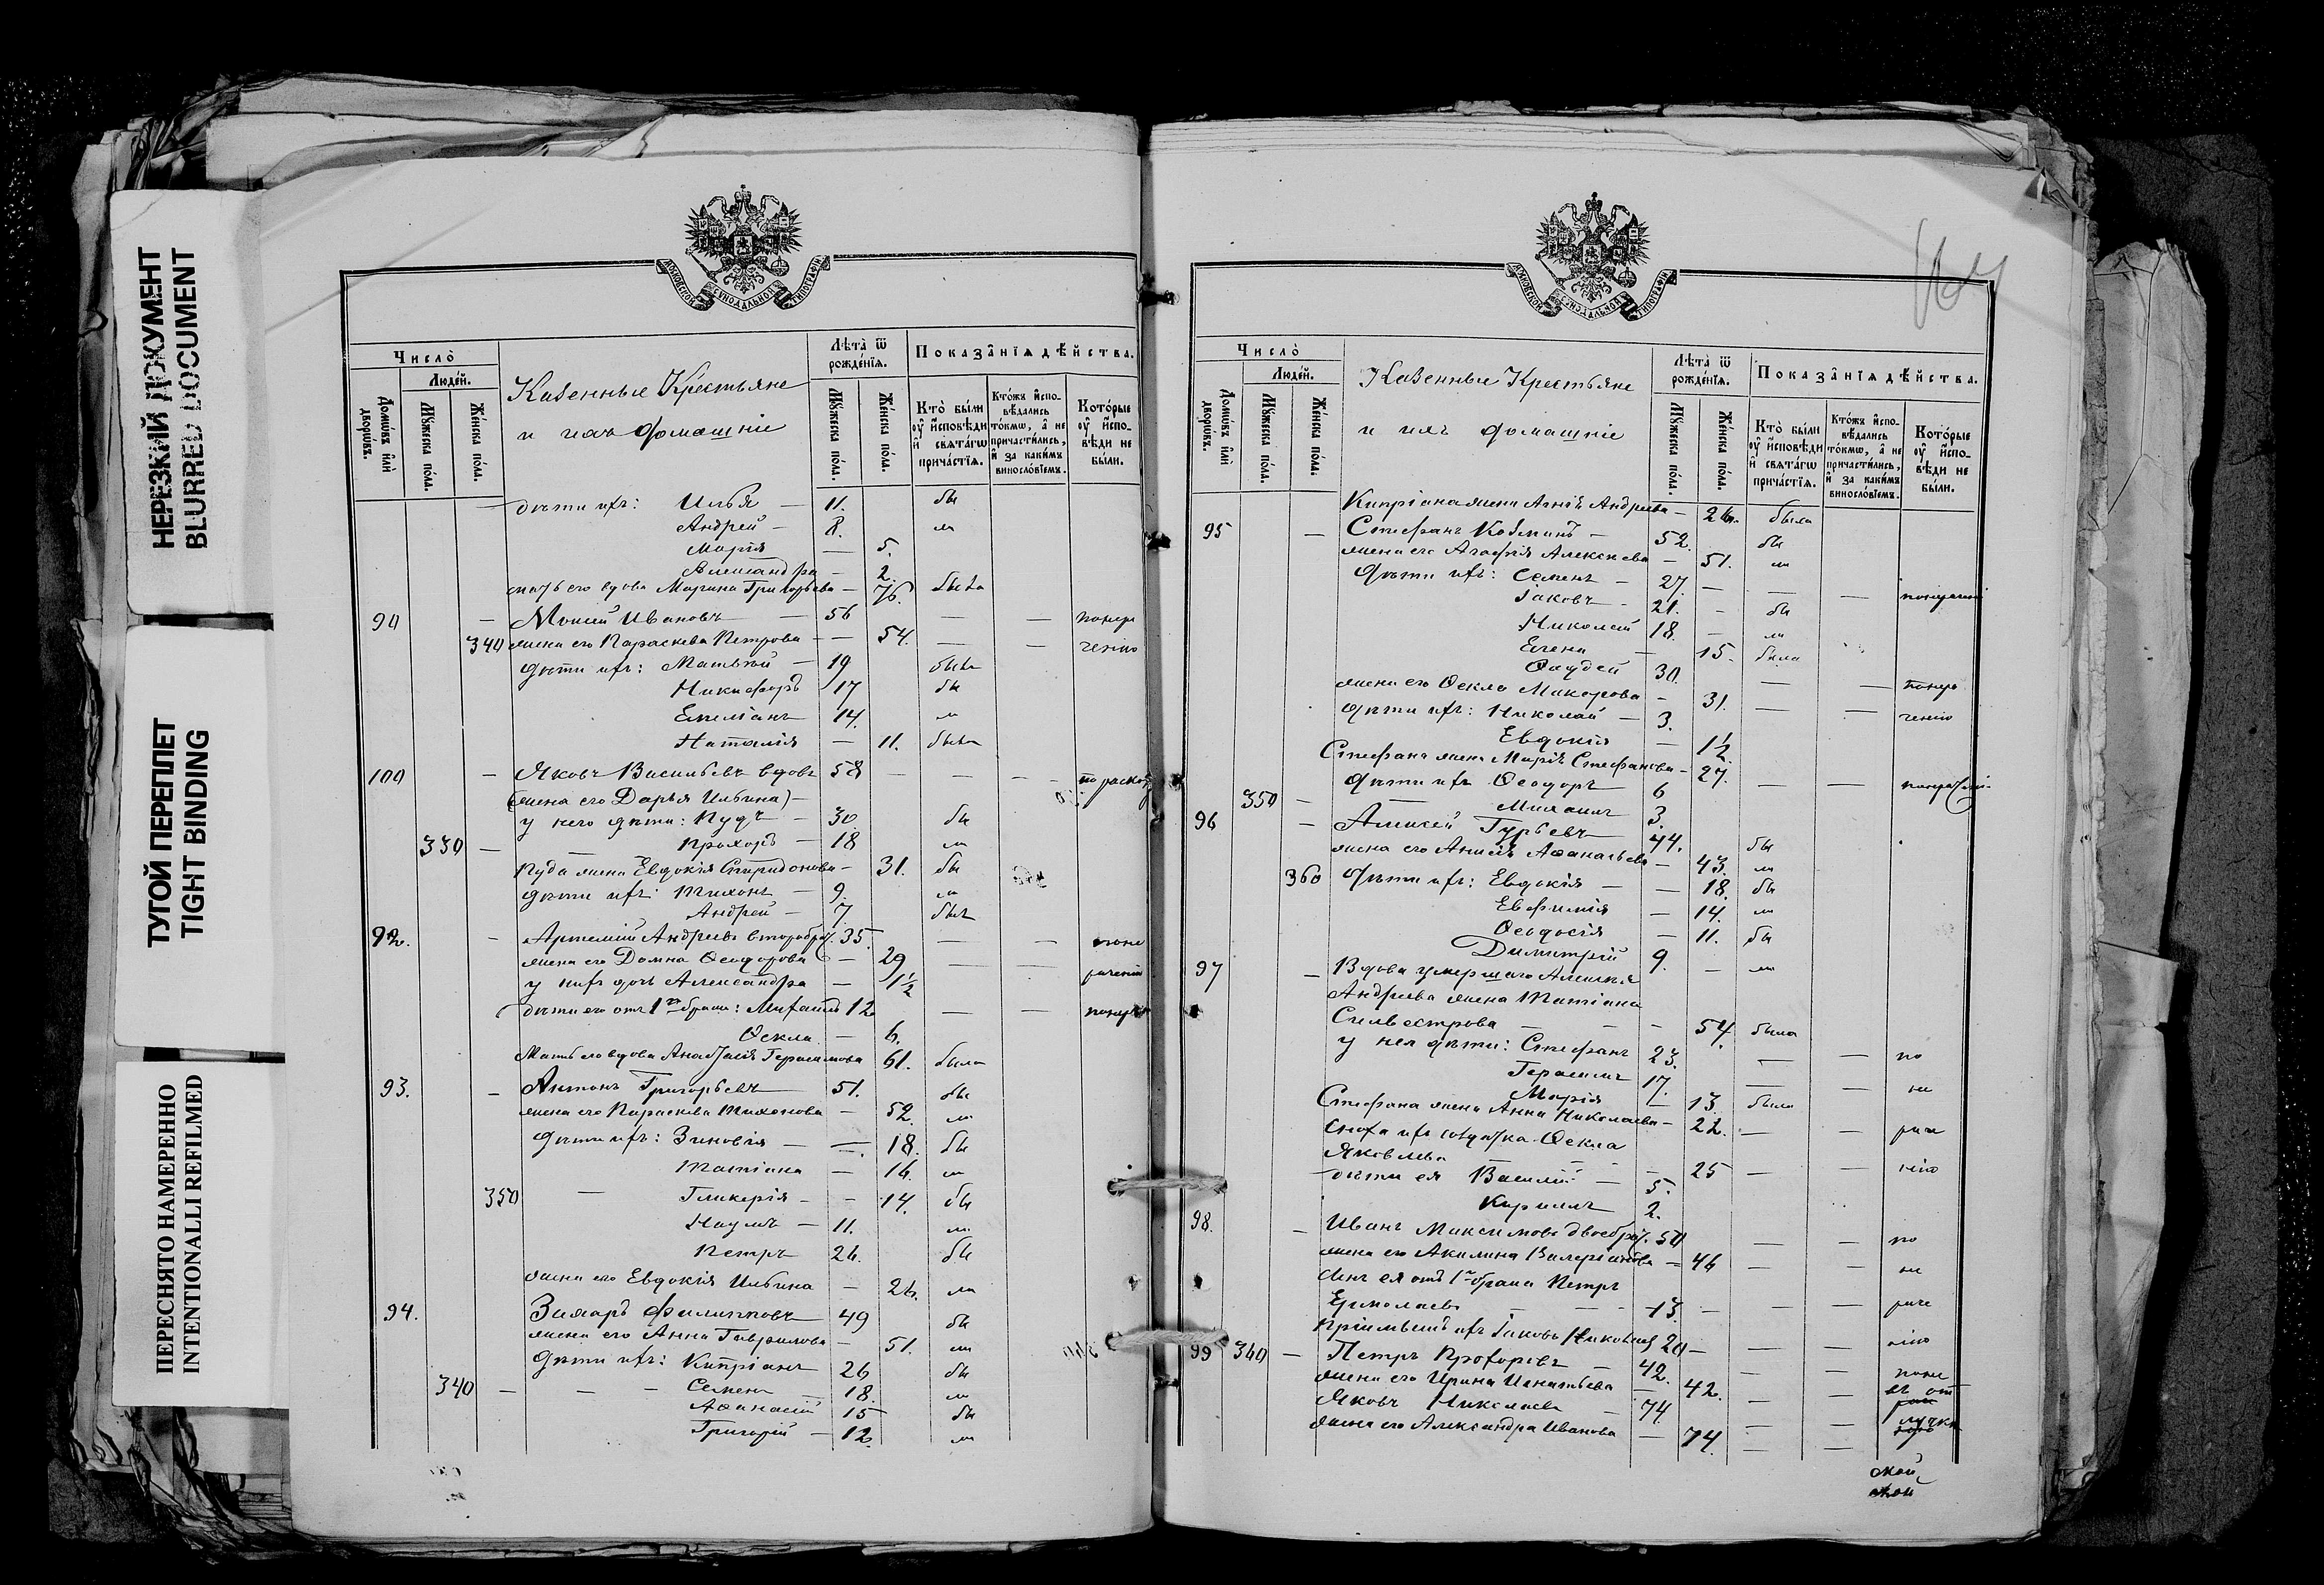 НЕРЕЗКИЙ ДОКУМЕНТ
BLURRED DOCUMENT
ТУГОЙ ПЕРЕПЛЕТ
TIGHT BINDING
ПЕРЕСНЯТО НАМЕРЕННО
INTENTIONALLI REFILMED
МОСКОВСКОЙ СѴНОДАЛЬНОЙ ТИПОГРАФІИ
Число̀
Людей.
Домѡвъ илѝ дворѡвъ.
Мꙋжеска пола.
Женска пола.
Казенные Крестьяне
и ихъ домашніе
Лѣта̀ ѿ рожденїѧ.
Мꙋжеска пола.
Женска пола.
Показанїѧ дѣйства.
Кто̀ были оу исповѣди и свѧтагѡ причастїѧ.
Ктожъ исповѣдались токмѡ, а не причастились, и за какимъ винословїемъ.
Которые оу исповѣди не были.
дѣти ихъ: Илья — 11. бы
Андрей — 8. лъ
Марія — 5.
Александра — 2.
мать его вдова Марина Григорьева — 76. была
— Моисей Ивановъ — 56 — — понера
340 жена его Параскева Петрова — — 54. — — ченію
дѣти ихъ: Матвѣй — 19 былъ
Никифоръ 17 бы
Емеліанъ 14. лъ
Наталія — 11. была
100 — Яковъ Васильевъ вдовъ 58 — — — по раскол
(жена его Дарья Ильина) —
у него дѣти: Пудъ — 30 бы
330 — Прохоръ — 18 лъ
Пуда жена Евдокія Спиридонова — 31. бы
дѣти ихъ: Тихонъ — 9. лъ
Андрей — 7 былъ
92. — Артемій Андреевъ второбрач. 35. — —
жена его Домна Ѳеодорова — 29 — —
у нихъ дочь Александра — 1½
дѣти его отъ 1го брака: Михаилъ 12 — —
Ѳекла — 6.
Мать его вдова Анастасія Герасимова 61. была
93. — Антонъ Григорьевъ 51. бы
жена его Параскева Тихонова — 52. лъ
дѣти ихъ: Зиновія — — 18. бы
Татіана — 16. лъ
350 — Гликерія — — 14. бы
Наумъ — 11. лъ
Петръ 26. бы
жена его Евдокія Ильина — 26. лъ
94. Захаръ Филипповъ 49 бы
жена его Анна Гаврилова — 51. лъ
дѣти ихъ: Кипріанъ 26 бы
340 — — — Семенъ — 18. лъ
Аѳанасій 15 бы
Григорій — 12. лъ
МОСКОВСКОЙ СѴНОДАЛЬНОЙ ТИПОГРАФІИ
Число̀
Людей.
Домѡвъ илѝ дворѡвъ.
Мꙋжеска пола.
Женска пола.
Казенные Крестьяне
и ихъ домашніе
Лѣта̀ ѿ рожденїѧ.
Мꙋжеска пола.
Женска пола.
Показанїѧ дѣйства.
Кто̀ были оу исповѣди и свѧтагѡ причастїѧ.
Ктожъ исповѣдались токмѡ, а не причастились, и за какимъ винословїемъ.
Которые оу исповѣди не были.
Кипріана жена Агнія Андреева — 26. была
95 — Стефанъ Козминъ — 52. бы
жена его Агафія Алексеева — 51. лъ
дѣти ихъ: Семенъ — 27. — — —
Іаковъ — 21. — бы
Николай 18. — лъ
Елена — 15. была
Ѳаддей 30. — — понера
жена его Ѳекла Макарова — 31. — — ченію
дѣти ихъ: Николай — 3.
Евдокія — 1½
Стефана жена Марія Стефанова — 27. — —
дѣти ихъ Ѳеодоръ 6
350 — Михаилъ 3.
96 — Алексей Гурьевъ 44. бы
жена его Анисія Аѳанасьева — 43. лъ
360 дѣти ихъ: Евдокія — — 18. бы
Евфимія — 14. лъ
Ѳеодосія — 11. бы
Димитрій 9. — лъ
97 — Вдова умершаго Алексѣя
Андреева жена Татіана
Сильвестрова — — — 54. была
у нея дѣти: Стефанъ 23. — — по
Герасимъ 17. — — не
Марія — 13. была
Стефана жена Анна Николаева — 22. — — раче
сноха ихъ солдатка Ѳекла
Яковлева — — 25 — — нію
дѣти ея Василій — 5.
Кириллъ 2.
98. — Иванъ Максимовъ двоебрач. 50 — — по
жена его Акилина Валеріанова — 46 — — не
сынъ ея отъ 1го брака Петръ
Ермолаевъ — — 13. — — — раче
Пріемышъ ихъ Іаковъ 20 — — — нію
99 340 — Петръ Прохоровъ — 42. — —
жена его Ирина Игнатьева — 42. — — въ от
Яковъ Николаевъ — 74 лучке
жена его Александра Иванова — 74. — —